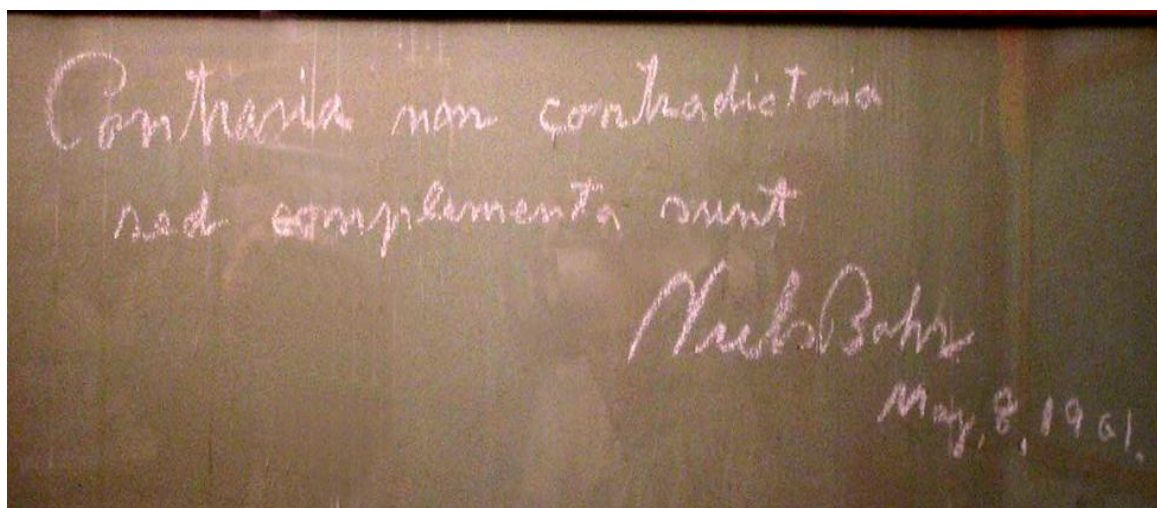 Contraria non contradictoria
sed complementa sunt
Niels Bohr
May, 8, 1961.